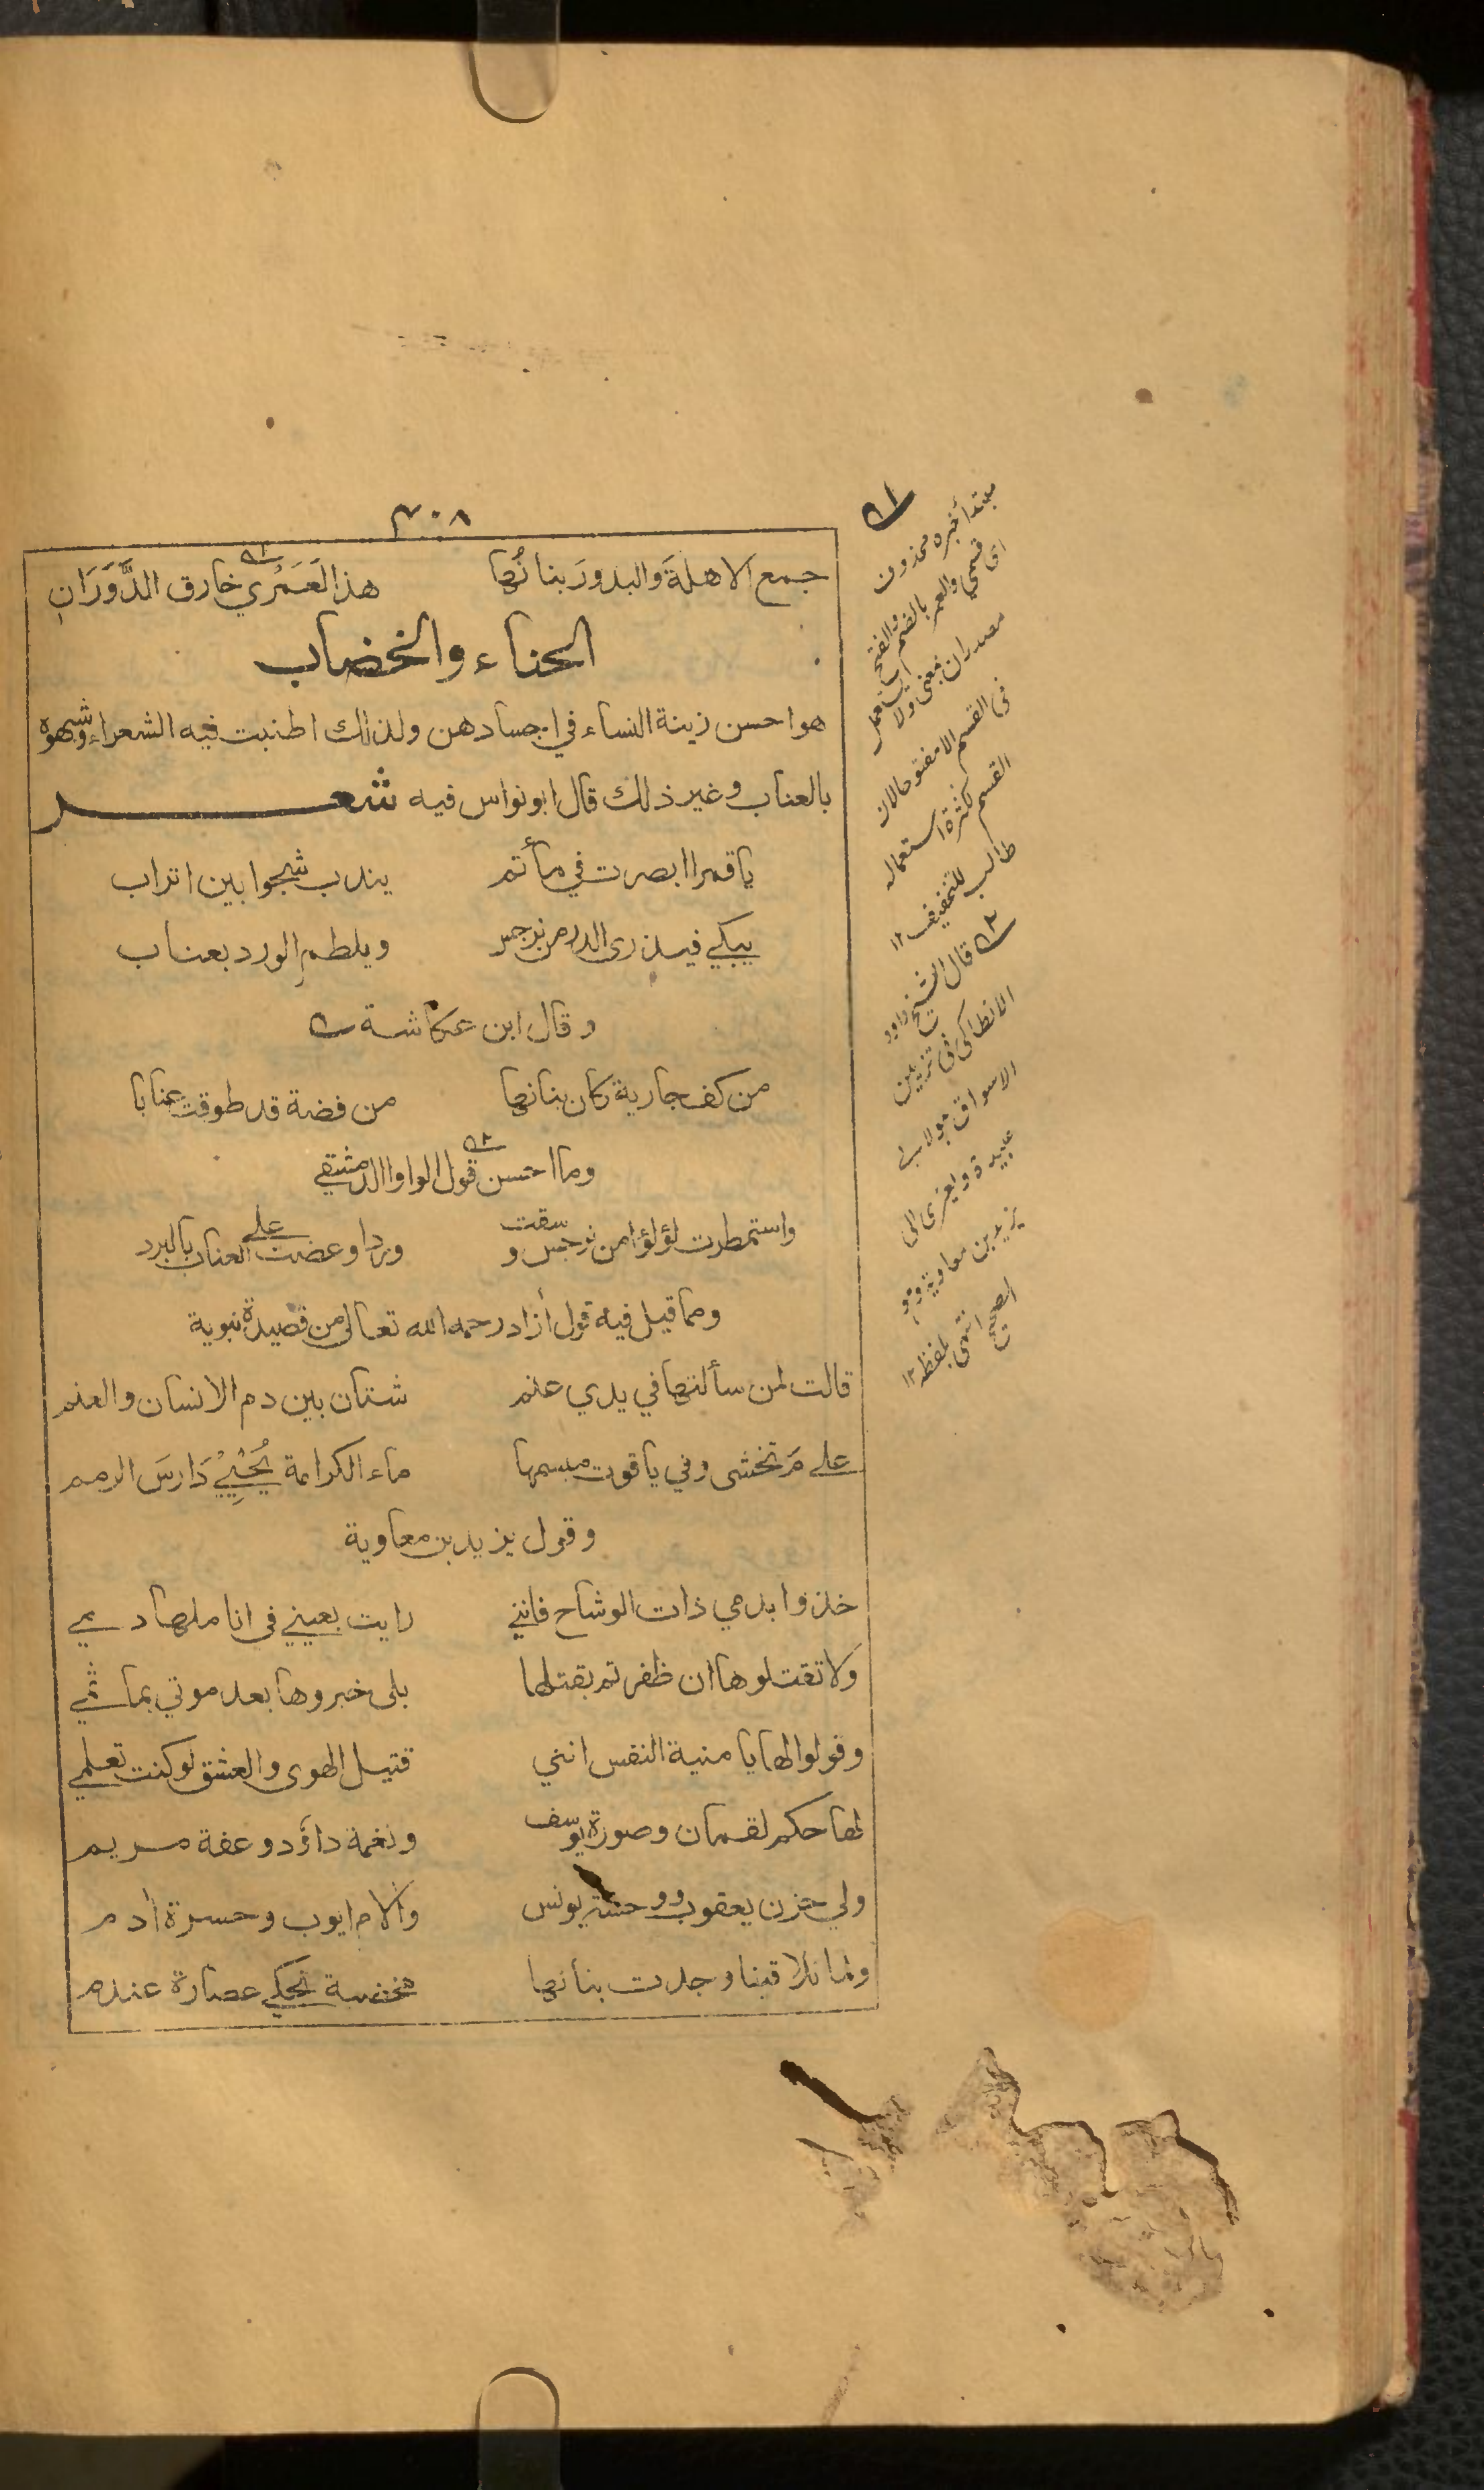 ٣٠٨
جمع الاهلةَ والبدورَ بنانُها هذا لَعَمْري خارق الدَّوَرَانِ
الحناء والخضاب
هو احسن زينة النساء في اجسادهن ولذلك اطنبت فيه الشعراء وشبهوه
بالعناب وغير ذلك قال ابو نواس فيه شعر
يا قمرا ابصرت في مأتم يندب شجوا بين اتراب
يبكي فيذري الدر من نرجس ويلطم الورد بعناب
وقال ابن عكاشة
من كف جارية كان بنانها من فضة قد طوقت عنابا
وما احسن قول الواوا الدمشقي
واستمطرت لؤلؤا من نرجس وسقت وردا وعضت على العناب بالبرد
ومما قيل فيه قول أزاد رحمه الله تعالى من قصيدة نبوية
قالت لمن سألتها في يدي عنم شتان بين دم الانسان والعنم
على مَ تخشى وفي ياقوت مبسمها ماء الكرامة يُحْيِيْ دَارسَ الرمم
وقول يزيد بن معاوية
خذوا بدمي ذات الوشاح فانني رايت بعيني في اناملها دمي
ولا تقتلوها ان ظفرتم بقتلها بلى خبروها بعد موتي بماتمي
وقولوا لها يا منية النفس انني قتيل الهوى والعشق لو كنت تعلمي
لها حكم لقمان وصورة يوسف ونغمة داؤد وعفة مريم
ولي حزن يعقوب ووحشة يونس وألام ايوب وحسرة أدم
ولما تلاقينا وجدت بنانها مخضبة تحكي عصارة عندم
مبتدأ خبره محذوف
اى قسمي والعمر بالضم والفتح
مصدران بمعنى ولا
فى القسم الا مفتوحا لان
القسم لكثرة استعماله
طالب للتخفيف ١٢
قال الشيخ داود
الانطاكى فى تزيين
الاسواق
عبيدة ويعزى الى
يزيد بن معاوية وهو
الصحيح انتهى بلفظه ١٢